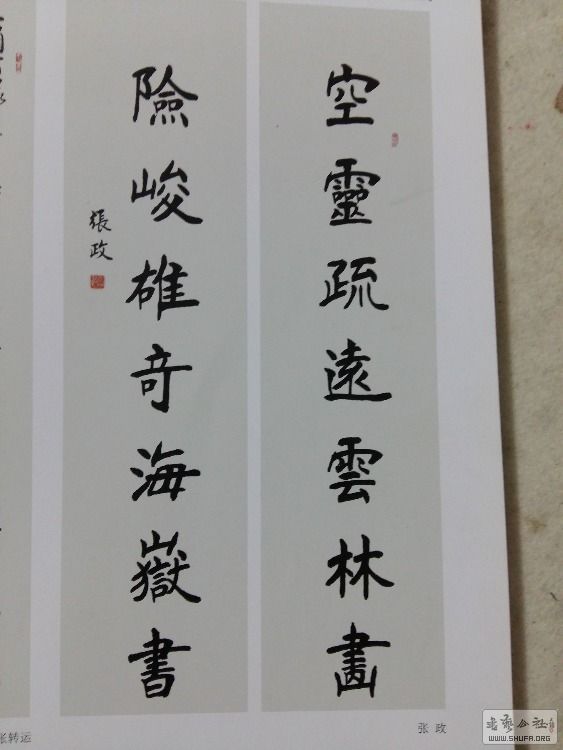 空靈疏遠雲林畫
險峻雄奇海嶽書
張政
张 政
张转运
书艺公社
WWW.SHUFA.ORG